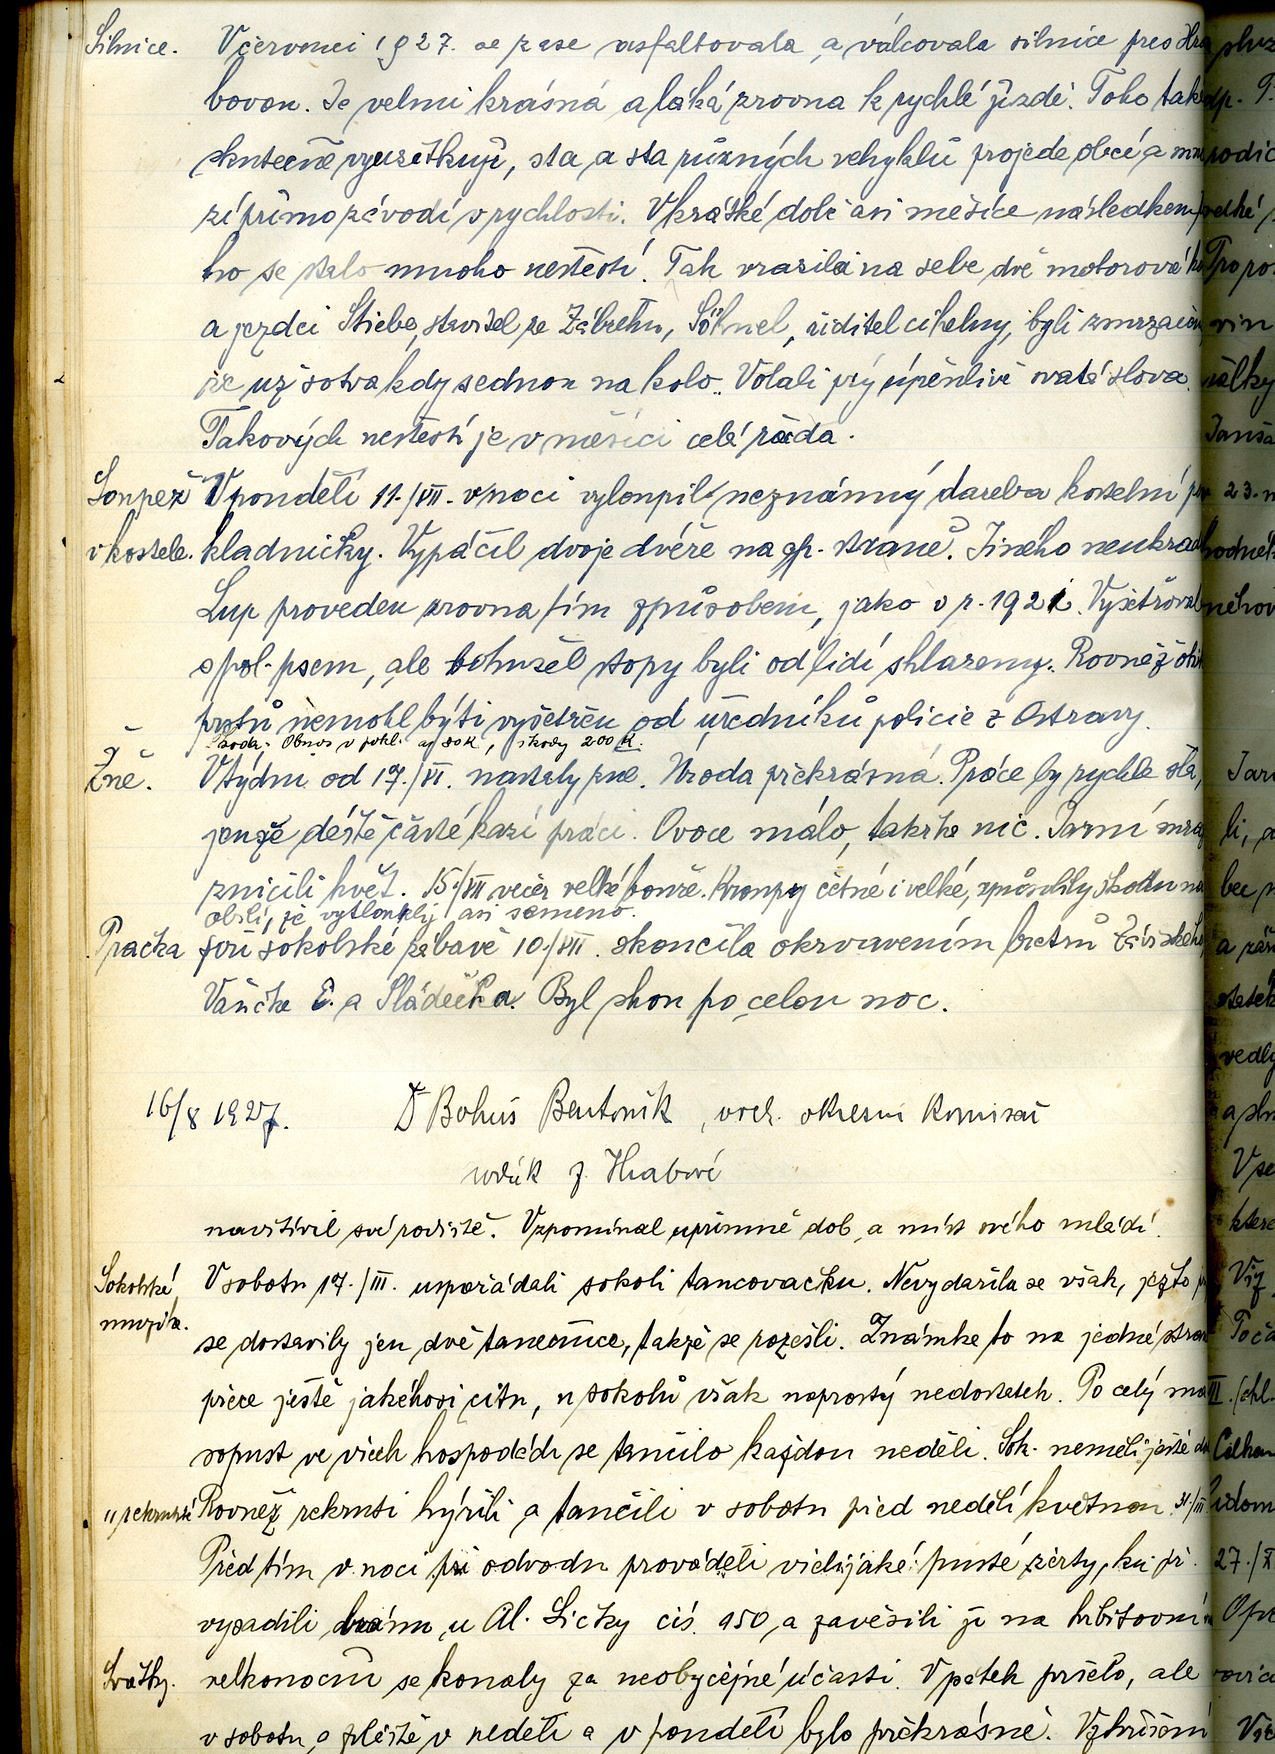 Silnice. V červenci 1927. se zase asfaltovala a válcovala silnice přes Hra
bovou. Je velmi krásná a láká zrovna k rychlé jízdě. Toho také
skutečně využitkují, sta a sta různých vehyklů projede obcí a mno
zí přímo závodí v rychlosti. V krátké době asi měsíce následkem
ho se stalo mnoho neštěstí. Tak vrazila na sebe dvě motorová
a jezdci Stiebe, stavitel ze Zábřehu, Söhnel, ředitel cihelny, byli
že už sotva kdy sednou na kolo. Volali prý úpěnlivě svatá slova.
Takových neštěstí je v měsíci celá řada.
Loupež V pondělí 11./VII. v noci vyloupil neznámý dareba kostelní po
v kostele. kladničky. Vypáčil dvoje dvéře na straně. Jiného neukrad
Lup proveden zrovna tím způsobem, jako v r. 1921. Vyšetřoval
s pol. psem, ale bohužel stopy byli od lidí shlazeny. Rovněž otisk
prstů nemohl býti vyšetřen od úředníků policie z Ostravy.
Obnos v pokl. as 80 K, škody 200 K.
Žně. V týdnu od 17./VI. nastaly žně. Úroda překrásná. Práce by rychle šla,
jenže déště časté kazí práci. Ovoce málo, takřka nic. Jarní mraz
zničili květ. 15./VII večer velké bouře. Kroupy četné i velké, způsobily škodu na
obilí, je vytloukly asi semeno.
Pračka při sokolské zábavě 10./VII. skončila okrvavením bratrů
Vaňka E. a Sládečka. Byl shon po celou noc.
16/8 1927. Dr Bohuš Bentoník, vrch. okresní komisař
rodák z Hrabové
navštívil své rodiště. Vzpomínal upřímně dob a míst svého mládí.
Sokolská V sobotu 17./III. uspořádali sokoli tancovačku. Nevydařila se však, ježto
muzika. se dostavily jen dvě tanečnice, takže se rozešli. Známka to na jedné stran
přece ještě jakéhosi citu, u sokolů však naprostý nedostatek. Po celý ma
sopust ve všech hospodách se tančilo každou neděli. Sok. neměli ještě
" rekrutská Rovněž rekruti hýřili a tančili v sobotu před nedělí květnou 31/III
Před tím v noci při odvodu prováděli všelijaké pusté žerty, ku př.
vysadili bránu u Al. Ličky čís. 150, a zavěsili ji na hřbitovní
Svátky. velkonoční se konaly za neobyčejné účasti. V pátek pršelo, ale
v sobotu a zvláště v neděli a v pondělí bylo překrásně. Vzkříšení